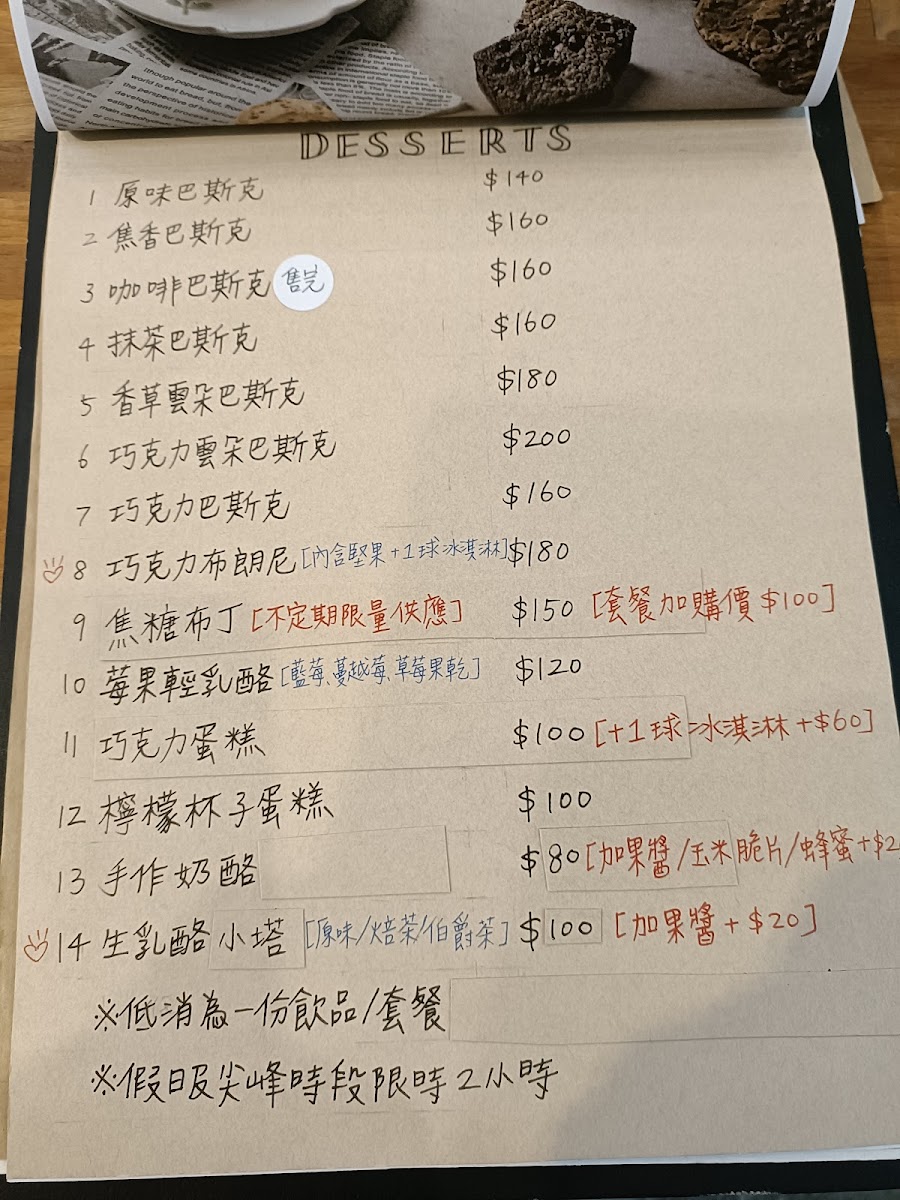 DESSERTS
1 原味巴斯克 $140
2 焦香巴斯克 $160
3 咖啡巴斯克 售完 $160
4 抹茶巴斯克 $160
5 香草雲朵巴斯克 $180
6 巧克力雲朵巴斯克 $200
7 巧克力巴斯克 $160
8 巧克力布朗尼[內含堅果+1球冰淇淋] $180
9 焦糖布丁[不定期限量供應] $150 [套餐加購價$100]
10 莓果輕乳酪[藍莓、蔓越莓、草莓果乾] $120
11 巧克力蛋糕 $100 [+1球冰淇淋+$60]
12 檸檬杯子蛋糕 $100
13 手作奶酪 $80 [加果醬/玉米脆片/蜂蜜+$2
14 生乳酪小塔 [原味/焙茶/伯爵茶] $100 [加果醬+$20]
※低消為一份飲品/套餐
※假日及尖峰時段限時2小時